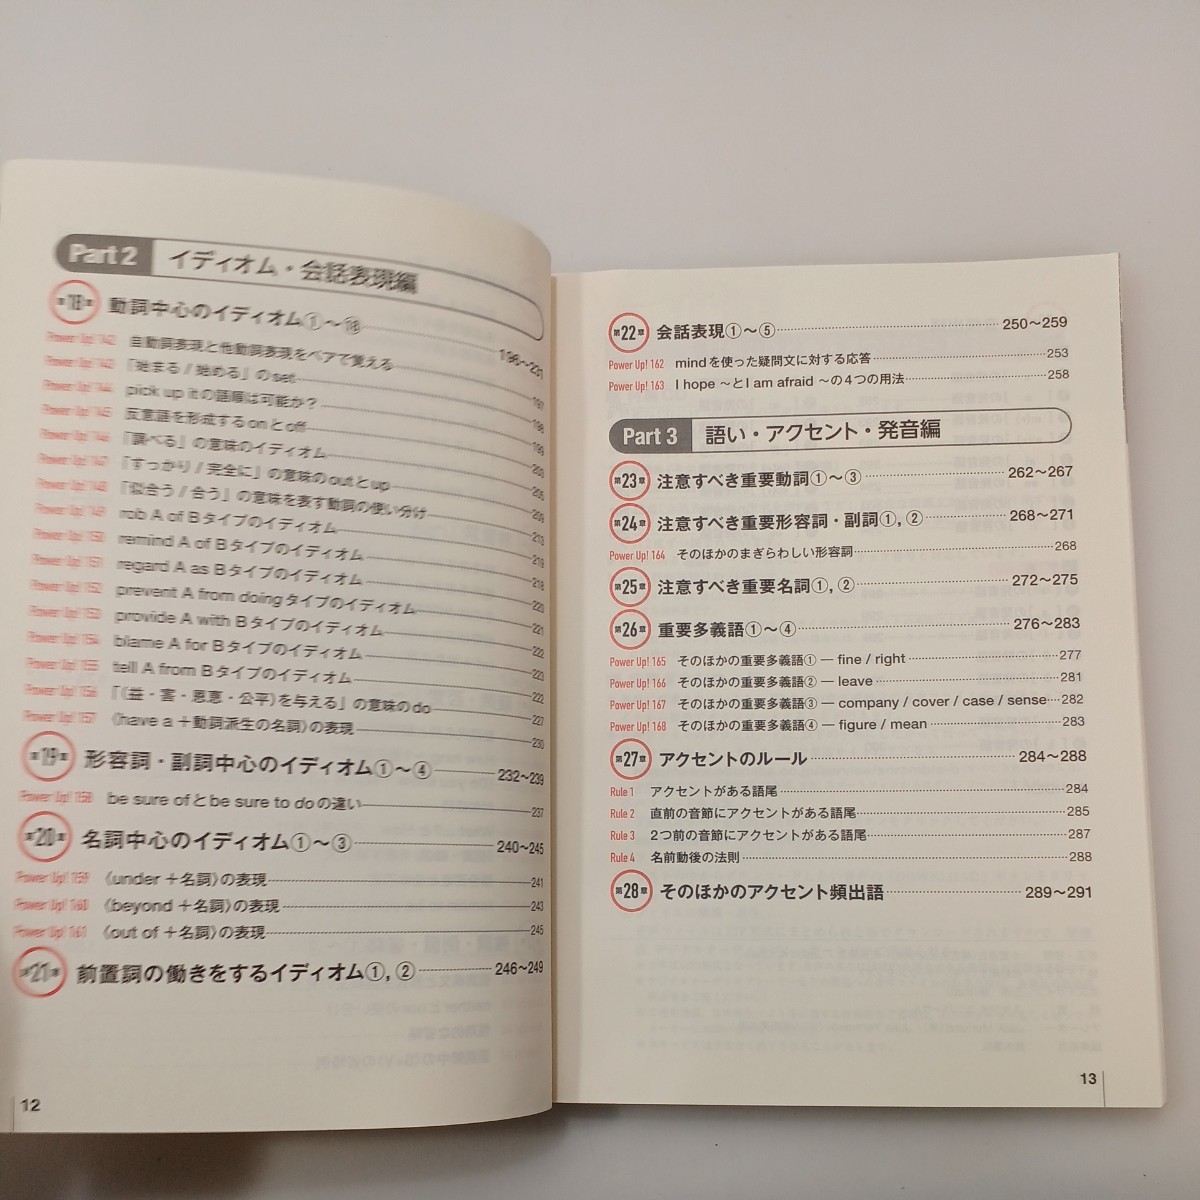 Part 2 イディオム・会話表現編
第18章 動詞中心のイディオム①～⑱ 196～231
Power Up! 142 自動詞表現と他動詞表現をペアで覚える 197
Power Up! 143 「始まる / 始める」のset 198
Power Up! 144 pick up itの語順は可能か？ 199
Power Up! 145 反意語を形成するonとoff 203
Power Up! 146 「調べる」の意味のイディオム 205
Power Up! 147 「すっかり / 完全に」の意味のoutとup 209
Power Up! 148 「似合う / 合う」の意味を表す動詞の使い分け 213
Power Up! 149 rob A of Bタイプのイディオム 219
Power Up! 150 remind A of Bタイプのイディオム 218
Power Up! 151 regard A as Bタイプのイディオム 220
Power Up! 152 prevent A from doingタイプのイディオム 221
Power Up! 153 provide A with Bタイプのイディオム 222
Power Up! 154 blame A for Bタイプのイディオム 223
Power Up! 155 tell A from Bタイプのイディオム 222
Power Up! 156 「（益・害・恩恵・公平）を与える」の意味のdo 227
Power Up! 157 〈have a＋動詞派生の名詞〉の表現 230
第19章 形容詞・副詞中心のイディオム①～④ 232～239
Power Up! 158 be sure ofとbe sure to doの違い 237
第20章 名詞中心のイディオム①～③ 240～245
Power Up! 159 〈under＋名詞〉の表現 241
Power Up! 160 〈beyond＋名詞〉の表現 243
Power Up! 161 〈out of＋名詞〉の表現 245
第21章 前置詞の働きをするイディオム①, ② 246～249
12
第22章 会話表現①～⑤ 250～259
Power Up! 162 mindを使った疑問文に対する応答 253
Power Up! 163 I hope ～とI am afraid ～の4つの用法 258
Part 3 語い・アクセント・発音編
第23章 注意すべき重要動詞①～③ 262～267
第24章 注意すべき重要形容詞・副詞①, ② 268～271
Power Up! 164 そのほかのまぎらわしい形容詞 268
第25章 注意すべき重要名詞①, ② 272～275
第26章 重要多義語①～④ 276～283
Power Up! 165 そのほかの重要多義語① ― fine / right 277
Power Up! 166 そのほかの重要多義語② ― leave 281
Power Up! 167 そのほかの重要多義語③ ― company / cover / case / sense 282
Power Up! 168 そのほかの重要多義語④ ― figure / mean 283
第27章 アクセントのルール 284～288
Rule 1 アクセントがある語尾 284
Rule 2 直前の音節にアクセントがある語尾 285
Rule 3 2つ前の音節にアクセントがある語尾 287
Rule 4 名前動後の法則 288
第28章 そのほかのアクセント頻出語 289～291
13